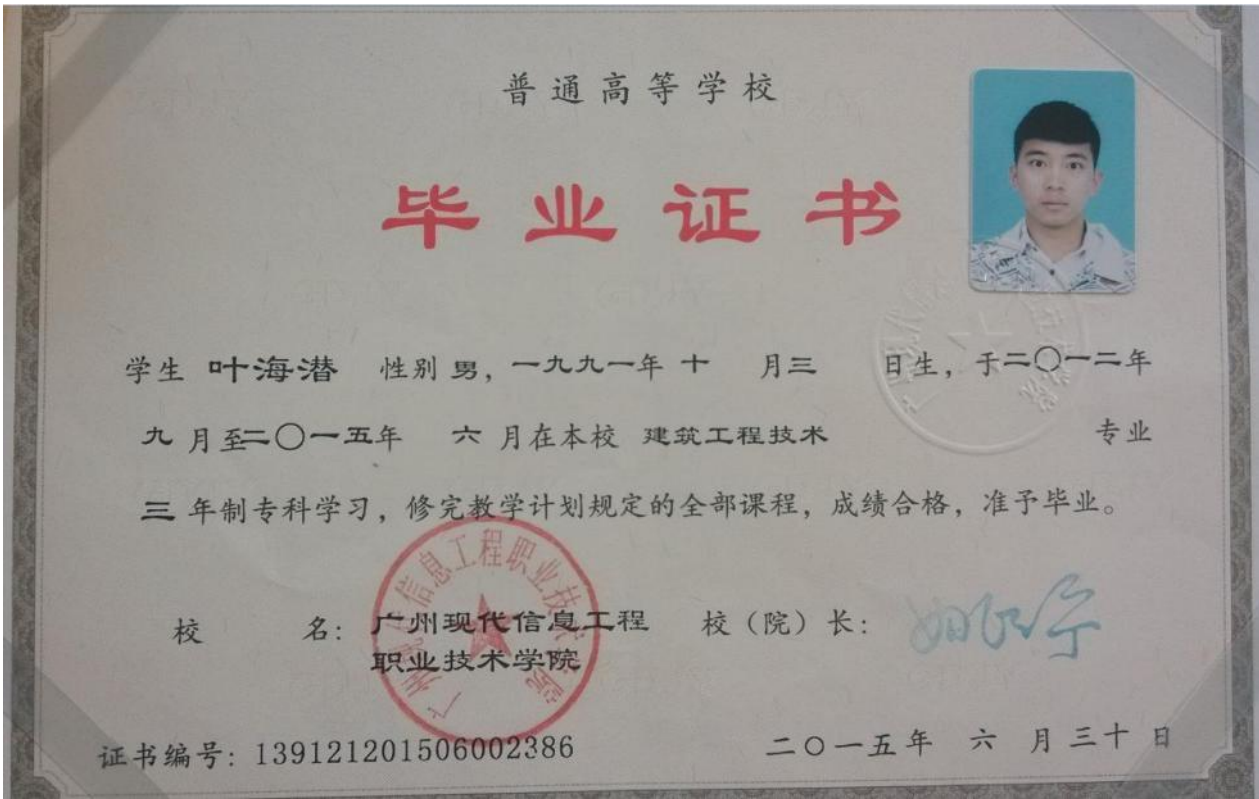 普通高等学校
毕业证书
学生 叶海潜 性别 男，一九九一年 十 月 三 日生，于二〇一二年
九 月至二〇一五年 六 月在本校 建筑工程技术 专业
三 年制专科学习，修完教学计划规定的全部课程，成绩合格，准予毕业。
校 名：广州现代信息工程
职业技术学院
校（院）长：
证书编号：139121201506002386
二〇一五年 六 月 三十 日